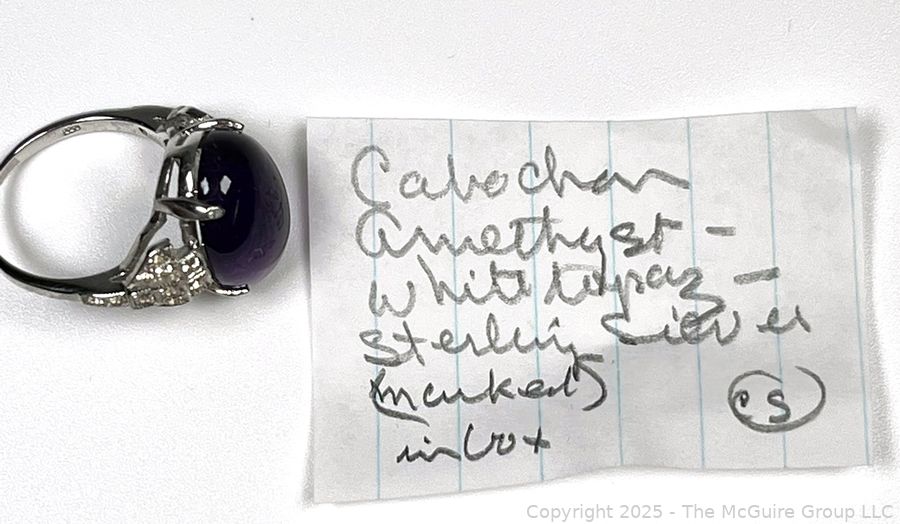 Cabochon
Amethyst -
White topaz -
Sterling Silver
(marked)
in box
Copyright 2025 - The McGuire Group LLC